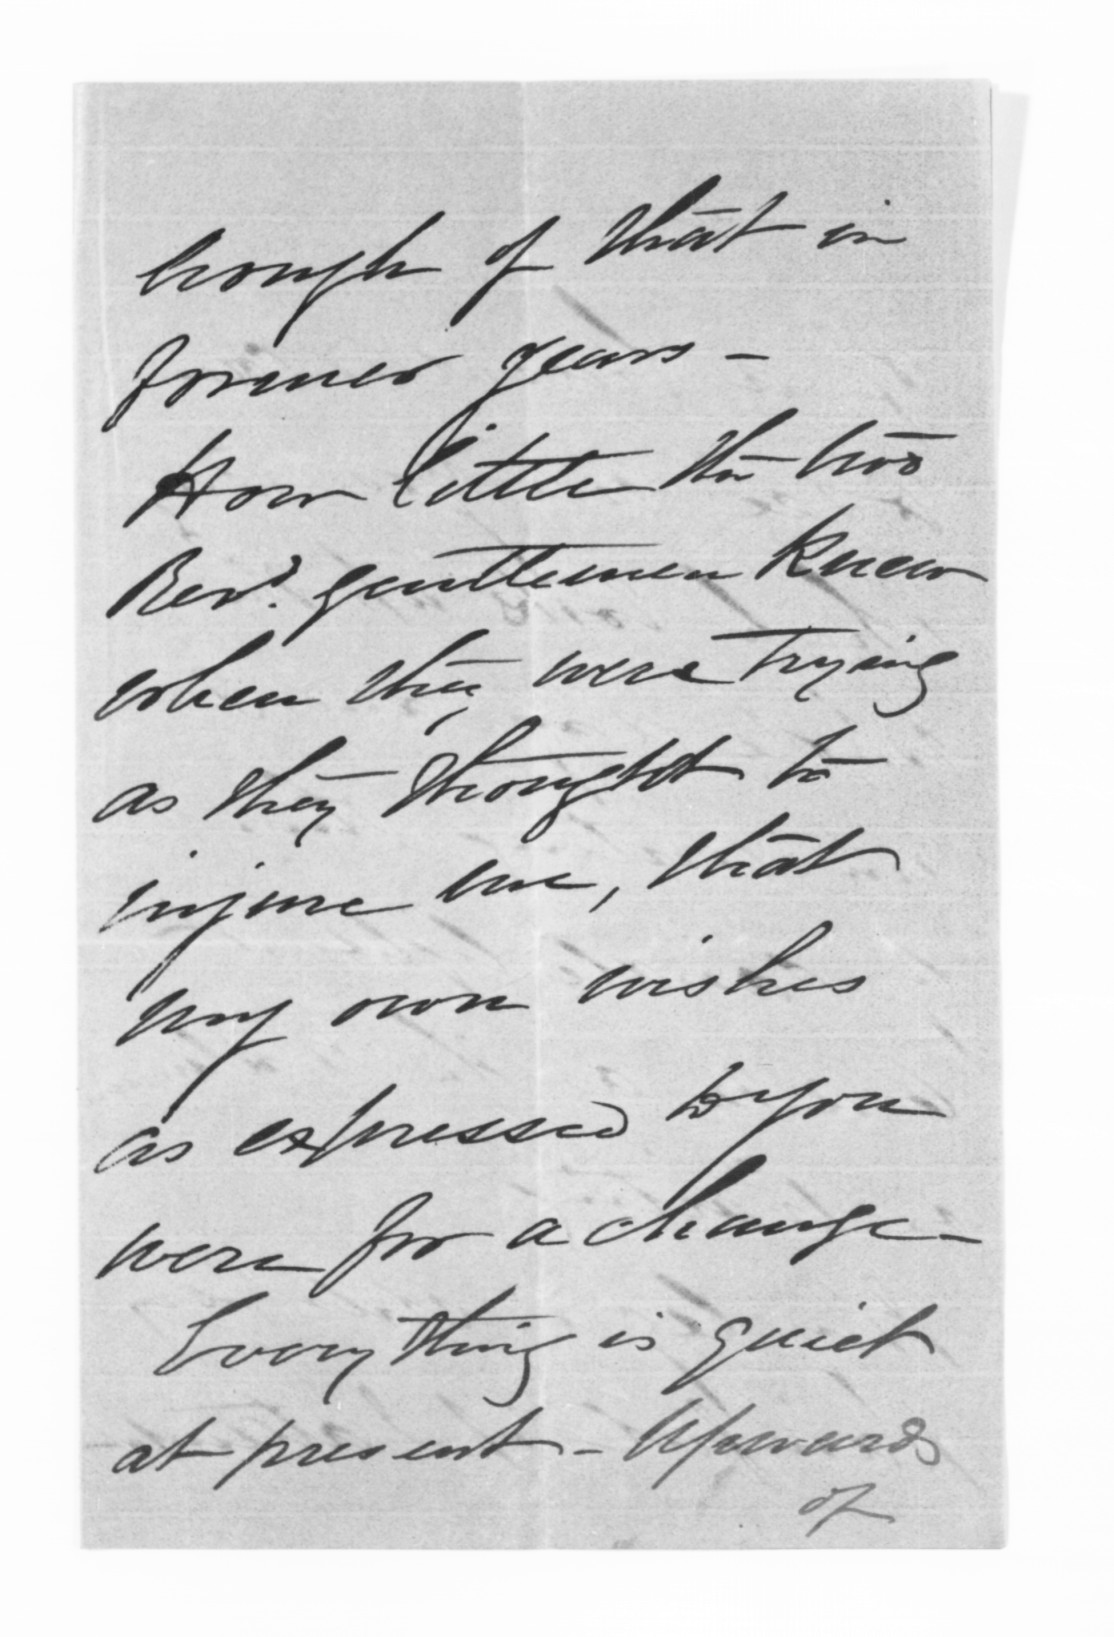 enough of that in
former years –
How little the two
Revd. gentlemen knew
when they were trying
as they thought to
injure me, that
my own wishes
as expressed to you
were for a change –
Everything is quiet
at present – Upwards
of